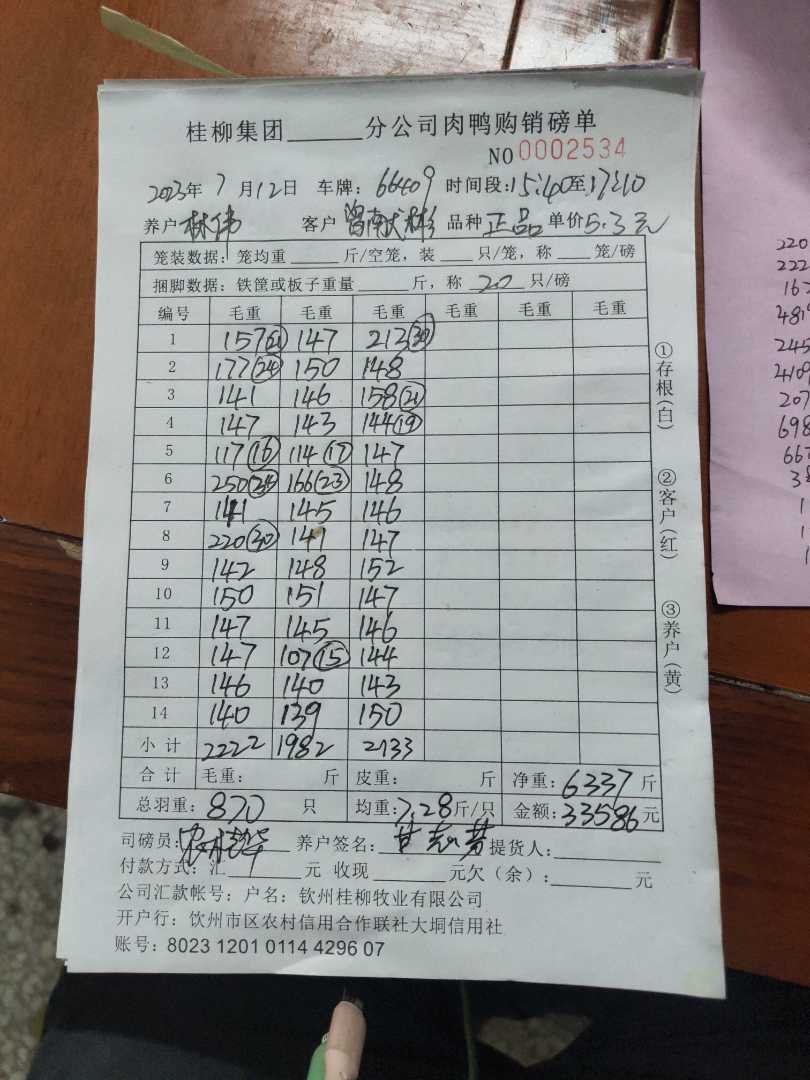 桂柳集团______分公司肉鸭购销磅单
NO 0002534
2023年 7 月 12 日 车牌: 66409 时间段: 15:40至17:10
养户 林伟 客户 品种 正品 单价 5.3元
笼装数据: 笼均重______斤/空笼, 装___只/笼, 称___笼/磅
捆脚数据: 铁筐或板子重量______斤, 称 20 只/磅
编号 毛重 毛重 毛重 毛重 毛重 毛重
1 157(21) 147 212(30)
2 177(24) 150 148
3 141 146 158(21)
4 147 143 144(19)
5 117(16) 114(17) 147
6 250 166(23) 148
7 141 145 146
8 220(30) 141 147
9 142 148 152
10 150 151 147
11 147 145 146
12 147 107(15) 144
13 146 140 143
14 140 139 150
小计 2222 1982 2133
合计 毛重: 斤 皮重: 斤 净重: 6337 斤
总羽重: 870 只 均重: 7.28 斤/只 金额: 33586 元
司磅员: 养户签名: 提货人:
付款方式: 汇______元 收现______元欠(余):______元
公司汇款帐号: 户名: 钦州桂柳牧业有限公司
开户行: 饮州市区农村信用合作联社大垌信用社
账号: 8023 1201 0114 4296 07
①存根(白)
②客户(红)
③养户(黄)
220
222
162
481
245
4109
207
698
667